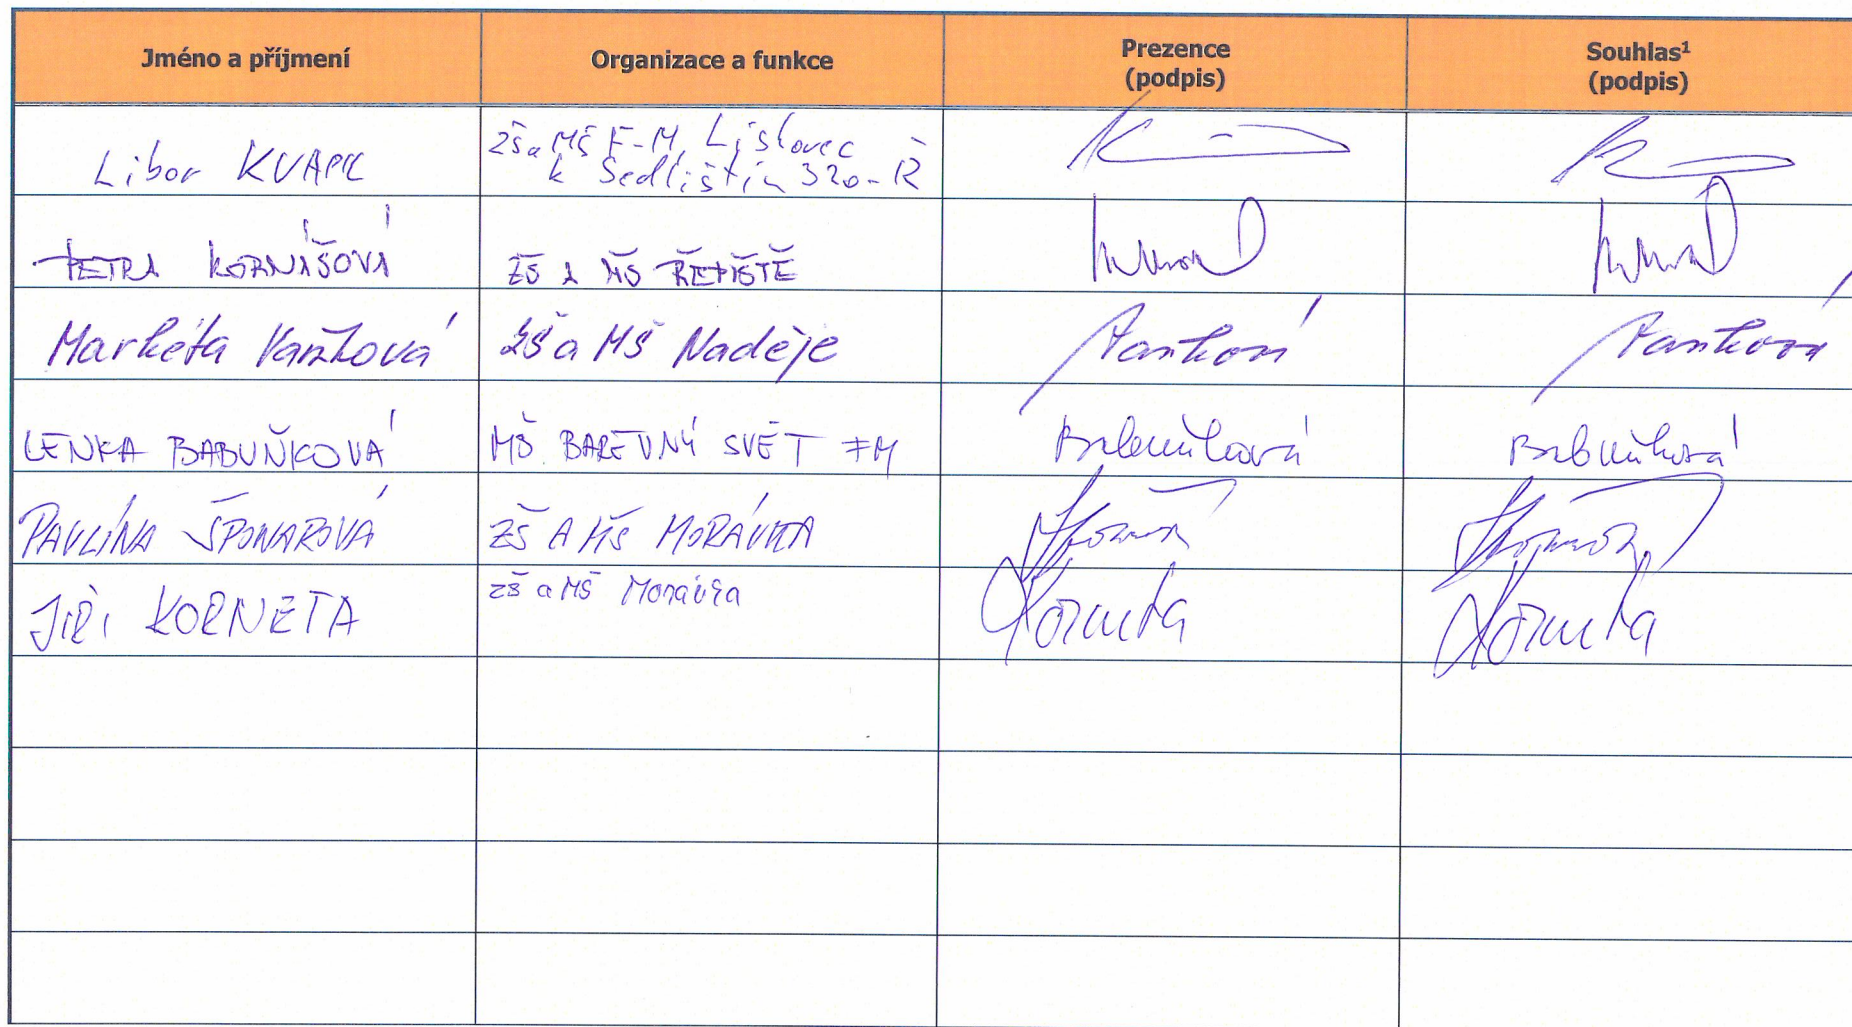 Jméno a příjmení Organizace a funkce Prezence (podpis) Souhlas¹ (podpis)
Libor KVAPIL ZŠ a MŠ F-M, Lískovec
k Sedlištím 320 - Ř
PETRA KORNÁŠOVÁ ZŠ A MŠ ŘEPIŠTĚ
Markéta Vaňková ZŠ a MŠ Naděje
LENKA BABUŇKOVÁ MŠ BAREVNÝ SVĚT FM Babuňková Babuňková
PAVLÍNA ŠPONAROVÁ ZŠ A MŠ MORÁVKA
JIŘÍ KORNETA ZŠ a MŠ Morávka Korneta Korneta